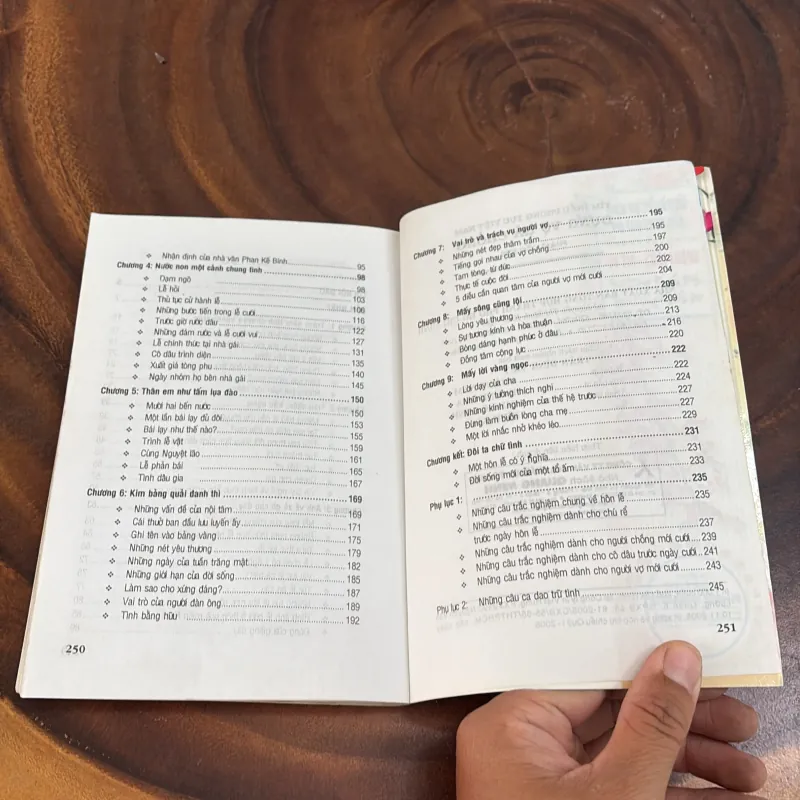 ❖ Nhận định của nhà văn Phan Kế Bính 95
Chương 4: Nước non một cảnh chung tình 98
❖ Dạm ngõ 98
❖ Lễ hỏi 103
❖ Thủ tục cử hành lễ 106
❖ Những bước tiến trong lễ cưới 116
❖ Trước giờ rước dâu 122
❖ Những đám rước và lễ cưới vui 127
❖ Lễ chính thức tại nhà gái 131
❖ Cô dâu trình diện 135
❖ Xuất giá tòng phu 140
❖ Ngày nhóm họ bên nhà gái 145
Chương 5: Thân em như tấm lụa đào 150
❖ Mười hai bến nước 150
❖ Một lần bái lạy đủ đôi 153
❖ Bái lạy như thế nào? 155
❖ Trình lễ vật 159
❖ Cúng Nguyệt lão 161
❖ Lễ phản bái 165
❖ Tình dâu gia 167
Chương 6: Kim bảng quải danh thì 169
❖ Những vấn đề của nội tâm 169
❖ Cái thuở ban đầu lưu luyến ấy 171
❖ Ghi tên vào bảng vàng 175
❖ Những nét yêu thương 179
❖ Những ngày của tuần trăng mật 182
❖ Những giới hạn của đời sống 185
❖ Làm sao cho xứng đáng? 187
❖ Vai trò của người đàn ông 189
❖ Tình bằng hữu 192
250
Chương 7: Vai trò và trách vụ người vợ 195
❖ Những nét đẹp thâm trầm 195
❖ Tiếng gọi nhau của vợ chồng 197
❖ Tam tòng, tứ đức 200
❖ Thực tế cuộc đời 202
❖ 5 điều cần quan tâm của người vợ mới cưới 204
Chương 8: Mấy sông cũng lội 209
❖ Lòng yêu thương 209
❖ Sự tương kính và hòa thuận 213
❖ Bóng dáng hạnh phúc ở đâu 216
❖ Đồng tâm cộng lực 220
Chương 9: Mấy lời vàng ngọc 222
❖ Lời dạy của cha 222
❖ Những ý tưởng thích nghi 224
❖ Những kinh nghiệm của thế hệ trước 227
❖ Đừng làm buồn lòng cha mẹ 227
❖ Một lời nhắc nhở khéo léo 229
Chương kết: Đôi ta chữ tình 231
❖ Một hôn lễ có ý nghĩa 231
❖ Đời sống mới của một tổ ấm 233
Phụ lục 1: 235
❖ Những câu trắc nghiệm chung về hôn lễ 235
❖ Những câu trắc nghiệm dành cho chú rể
trước ngày hôn lễ 237
❖ Những câu trắc nghiệm dành cho người chồng mới cưới 239
❖ Những câu trắc nghiệm dành cho cô dâu trước ngày cưới 241
❖ Những câu trắc nghiệm dành cho người vợ mới cưới 243
Phụ lục 2: Những câu ca dao trữ tình 245
251